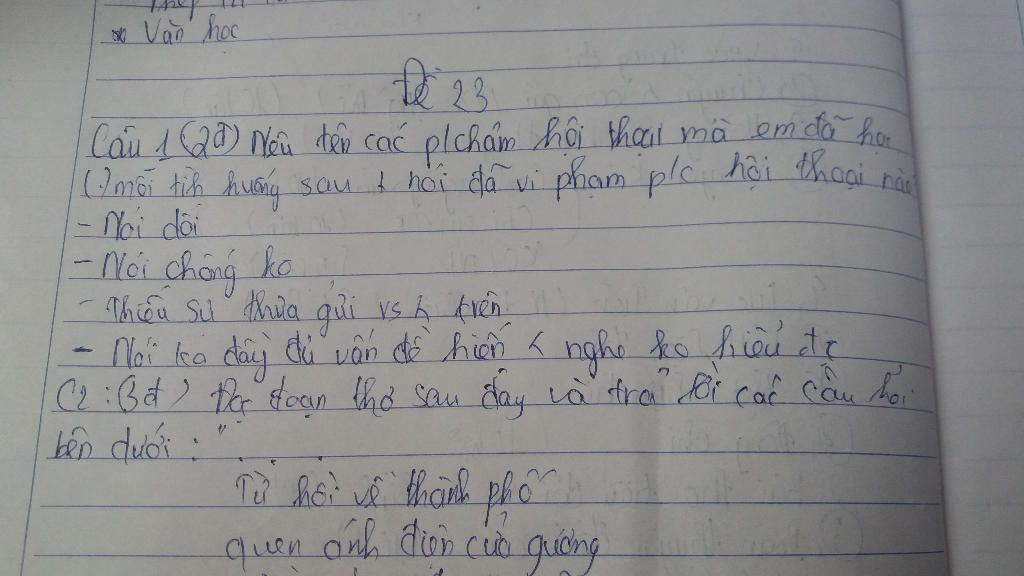 * Văn học
Đề 23
Câu 1 (2đ) Nêu tên các p/châm hội thoại mà em đã học
(.) mỗi tình huống sau < nói đã vi phạm p/c hội thoại nào
- Nói dối
- Nói chõng ko
- Thiếu sự thưa gửi vs < trên
- Nói ko đầy đủ vấn đề hiến < nghe ko hiểu đc
C2: (3đ) Đọc đoạn thơ sau đây và trả lời các câu hỏi
bên dưới: " . . . .
Từ hồi về thành phố
quen ánh điện cửa gương